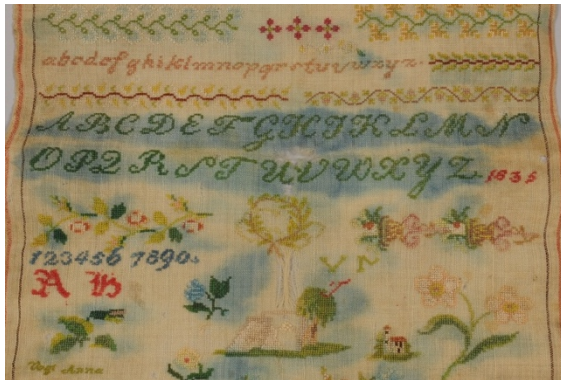 abcdefghiklmnopqrstuvwxyz.
ABCDEFGHIJKLMN
OPQRSTUVWXYZ. 1835
1234567890.
V N
A B
Vogt Anna